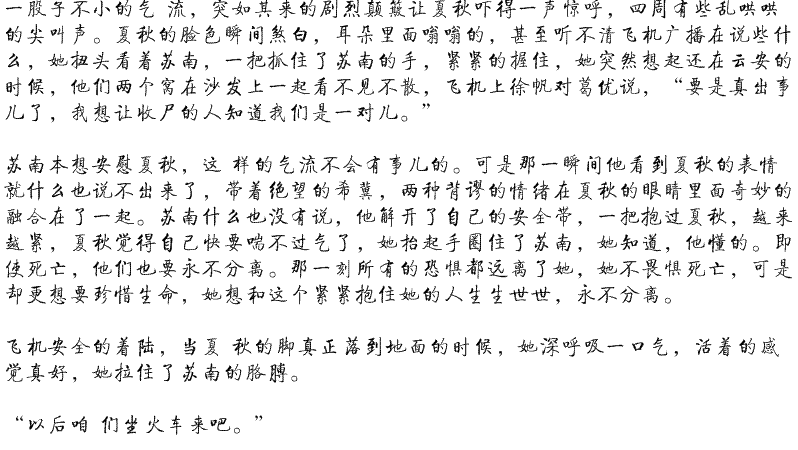 一股子不小的气 流，突如其来的剧烈颠簸让夏秋吓得一声惊呼，四周有些乱哄哄
的尖叫声。夏秋的脸色瞬间煞白，耳朵里面嗡嗡的，甚至听不清飞机广播在说些什
么，她扭头看着苏南，一把抓住了苏南的手，紧紧的握住，她突然想起还在云安的
时候，他们两个窝在沙发上一起看不见不散，飞机上徐帆对葛优说，“要是真出事
儿了，我想让收尸的人知道我们是一对儿。”
苏南本想安慰夏秋，这 样的气流不会有事儿的。可是那一瞬间他看到夏秋的表情
就什么也说不出来了，带着绝望的希冀，两种背谬的情绪在夏秋的眼睛里面奇妙的
融合在了一起。苏南什么也没有说，他解开了自己的安全带，一把抱过夏秋，越来
越紧，夏秋觉得自己快要喘不过气了，她抬起手圈住了苏南，她知道，他懂的。即
使死亡，他们也要永不分离。那一刻所有的恐惧都远离了她，她不畏惧死亡，可是
却更想要珍惜生命，她想和这个紧紧抱住她的人生生世世，永不分离。
飞机安全的着陆，当夏 秋的脚真正落到地面的时候，她深呼吸一口气，活着的感
觉真好，她拉住了苏南的胳膊。
“以后咱 们坐火车来吧。”